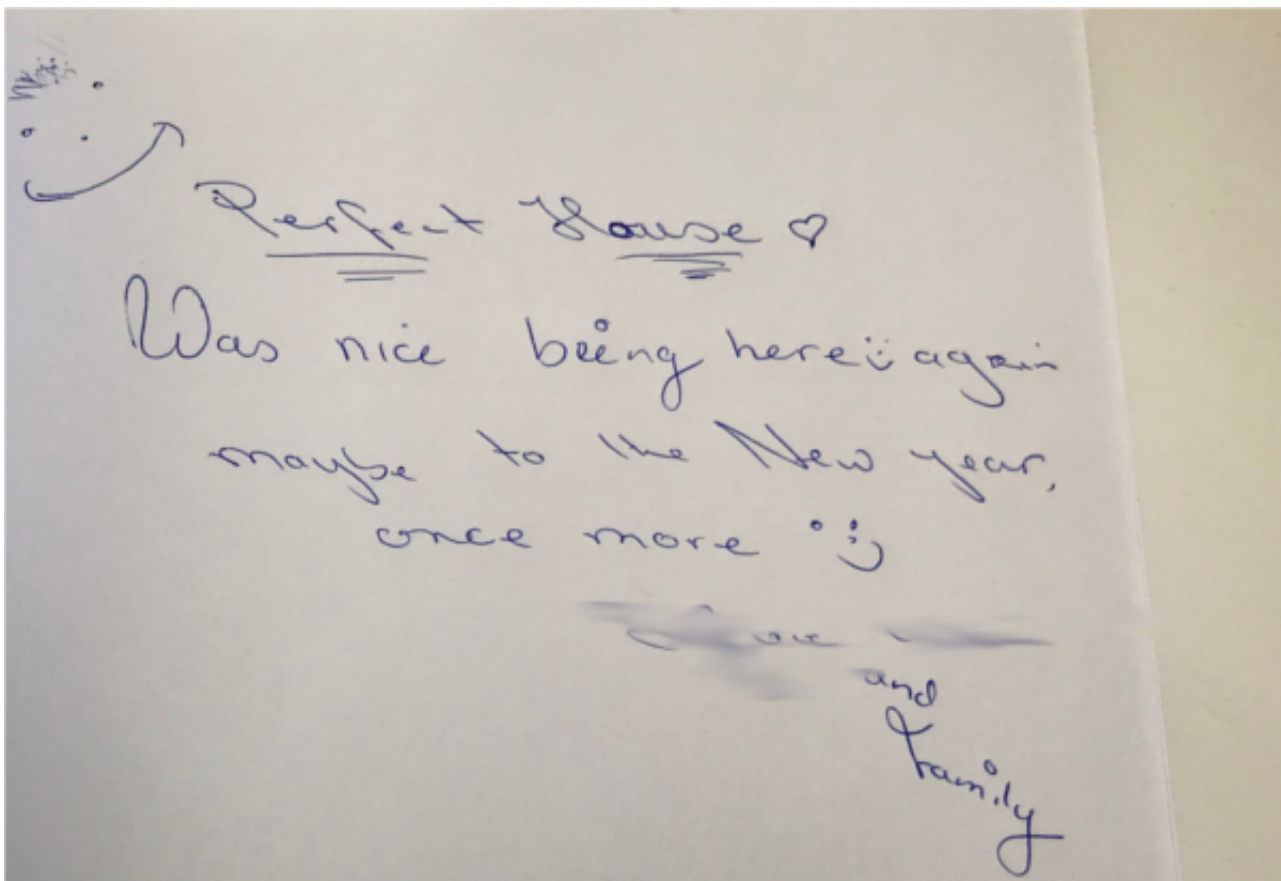 Perfect House ♡
Was nice being here :) again
maybe to the New year,
once more :)
and
Family